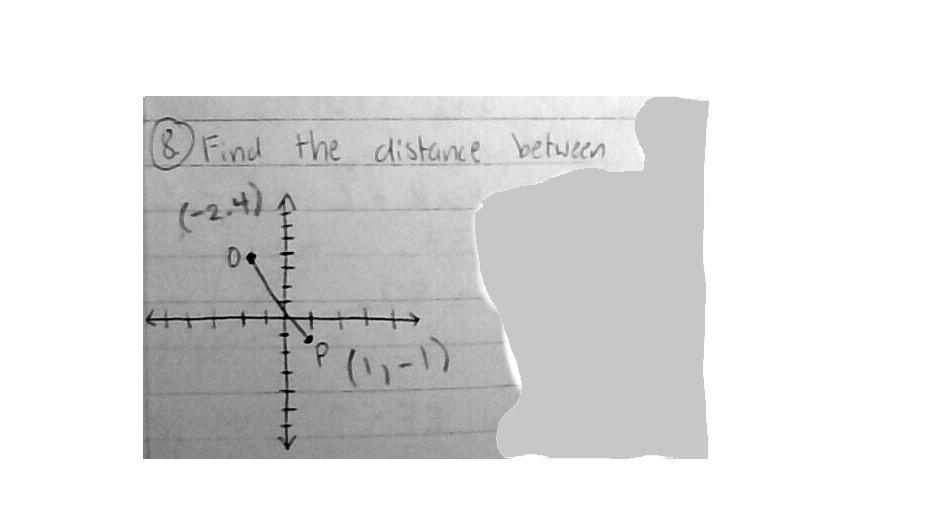 8 Find the distance between
(-2.4)
O
P (1,-1)